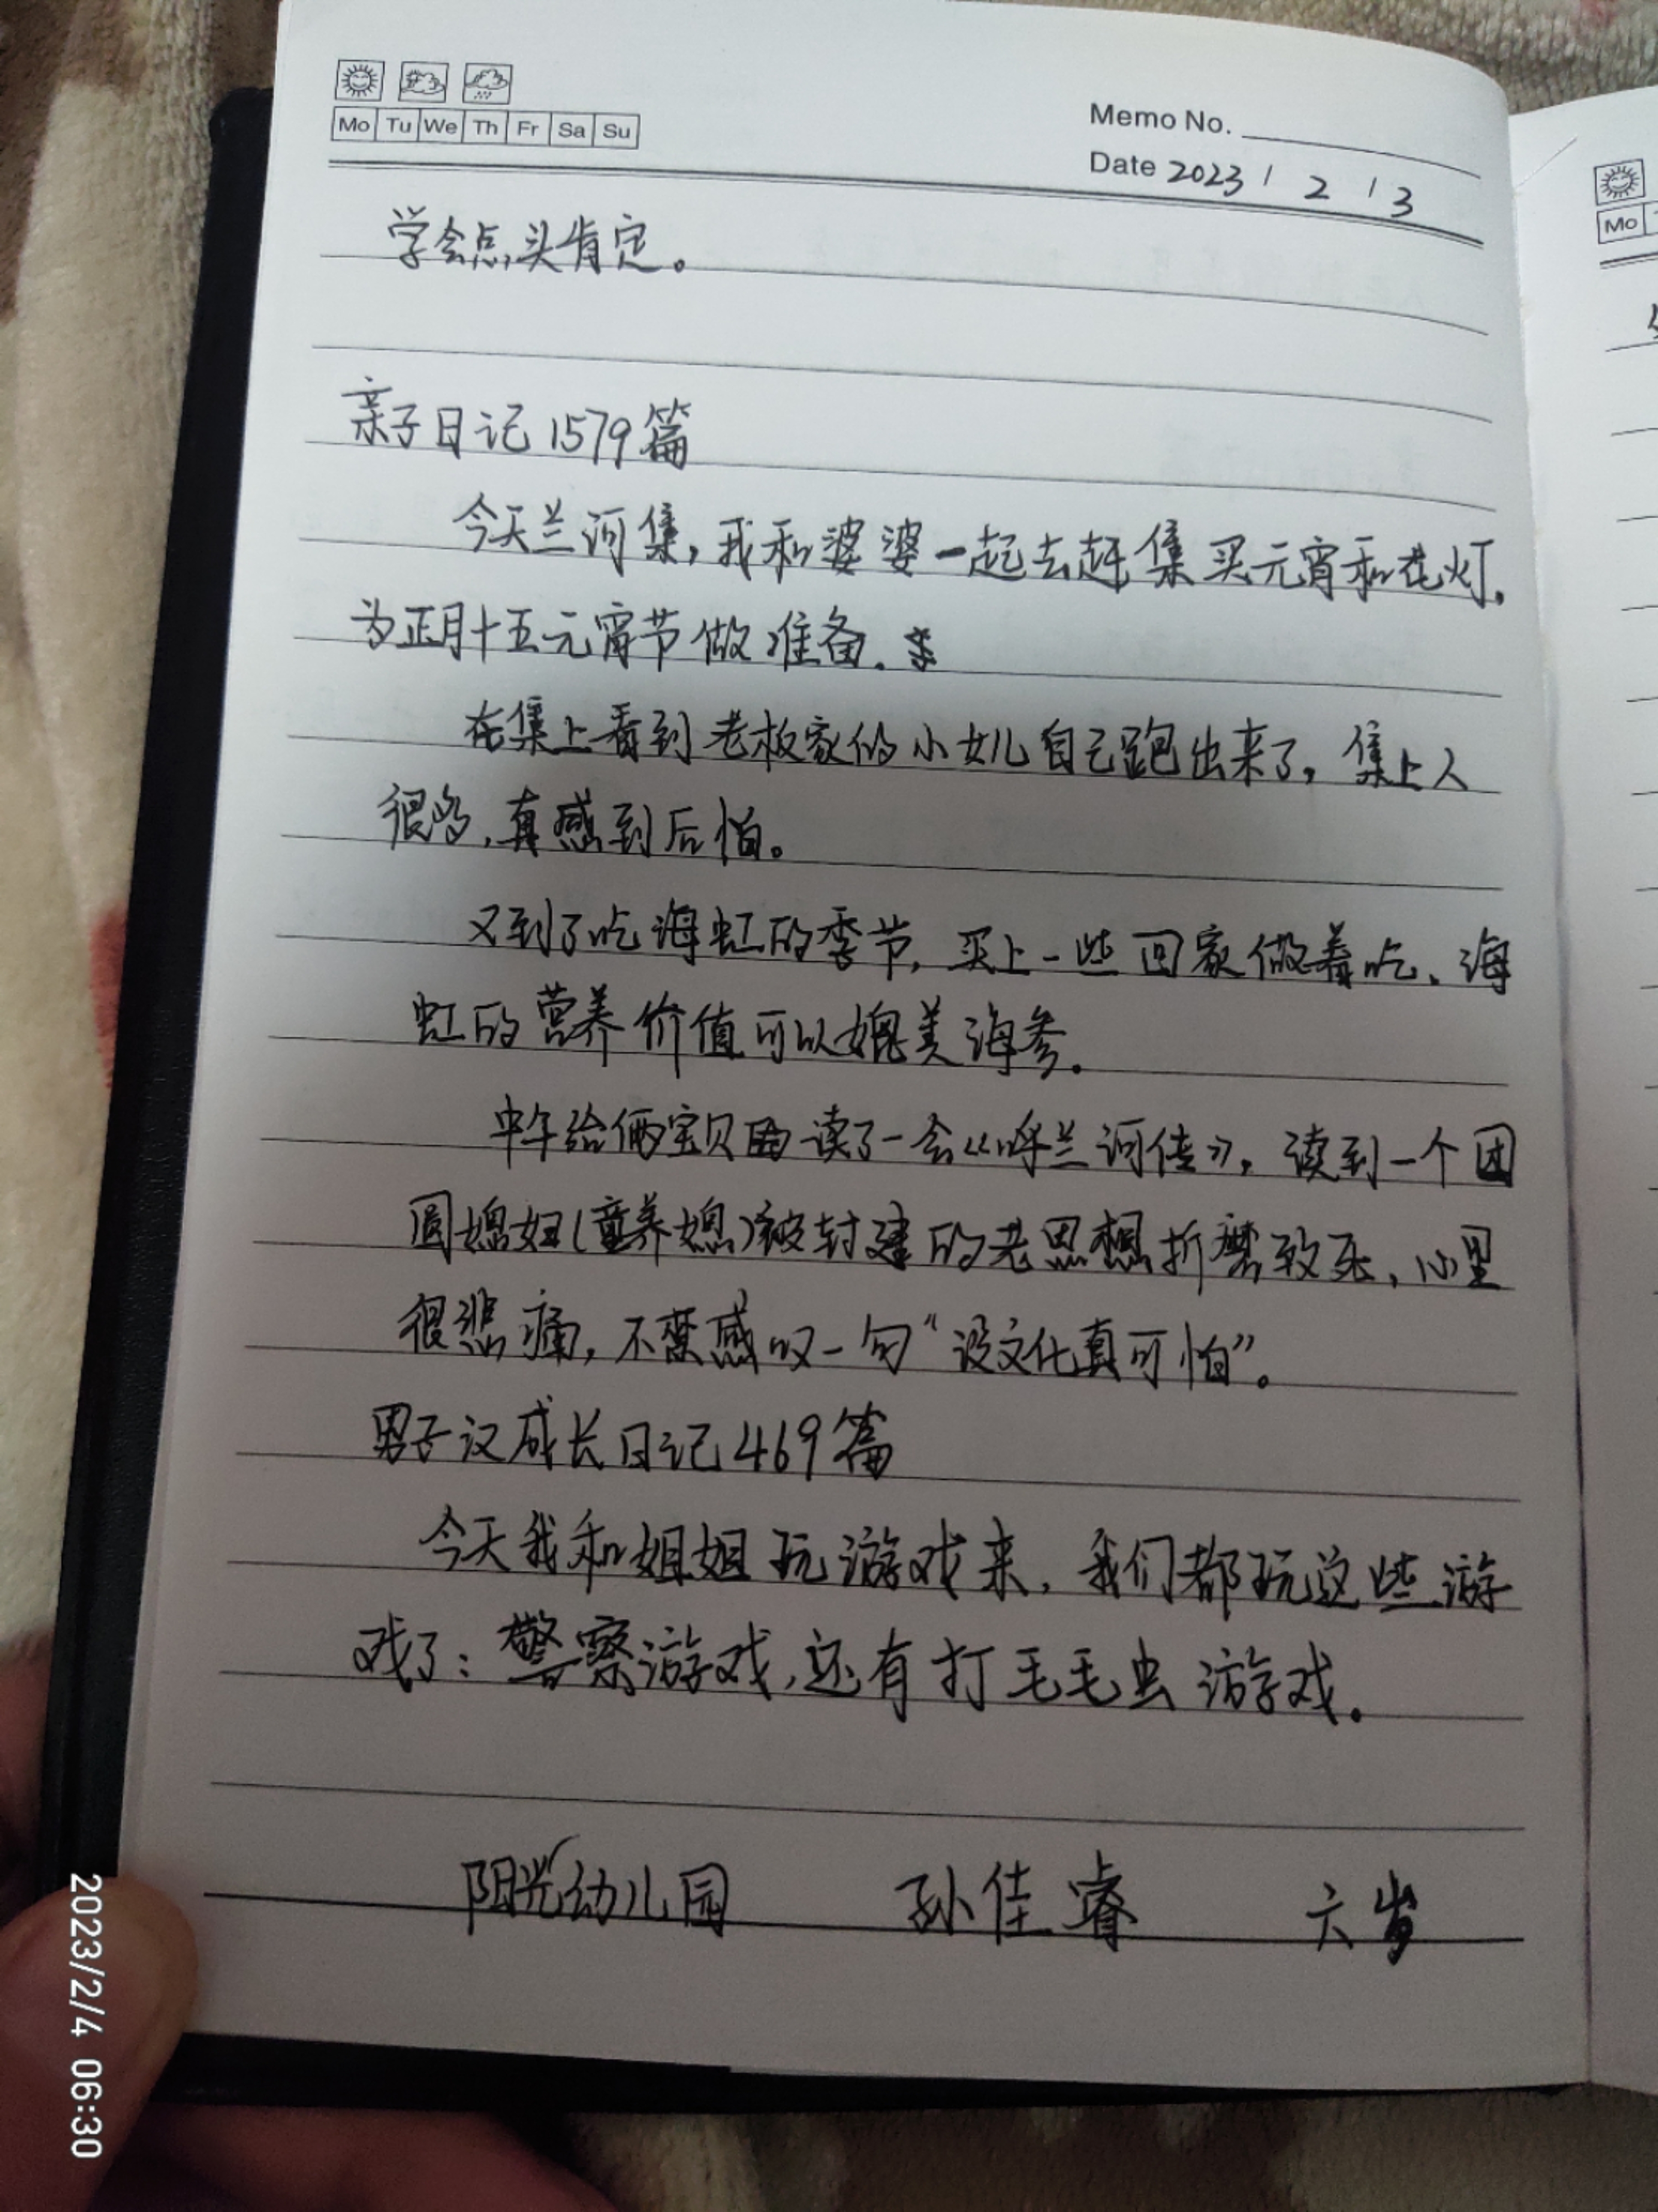 Mo Tu We Th Fr Sa Su
Memo No.
Date 2023 / 2 / 3
学会点头肯定。
亲子日记1579篇
今天兰河集,我和婆婆一起去赶集买元宵和花灯,
为正月十五元宵节做准备.
在集上看到老板家的小女儿自己跑出来了,集上人
很多,真感到后怕。
又到了吃海虹的季节,买上一些回家做着吃、海
虹的营养价值可以媲美海参.
中午给俩宝贝读了一会《呼兰河传》,读到一个团
圆媳妇(童养媳)被封建的老思想折磨致死,心里
很悲痛,不禁感叹一句“没文化真可怕”。
男子汉成长日记469篇
今天我和姐姐玩游戏来,我们都玩这些游
戏了:警察游戏,还有打毛毛虫游戏.
阳光幼儿园 孙佳睿 六岁
Mo
2023/2/4 06:30